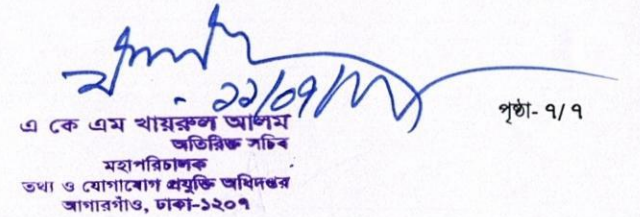 পৃষ্ঠা- ৭/৭
এ কে এম খায়রুল আলম
অতিরিক্ত সচিব
মহাপরিচালক
তথ্য ও যোগাযোগ প্রযুক্তি অধিদপ্তর
আগারগাঁও, ঢাকা-১২০৭